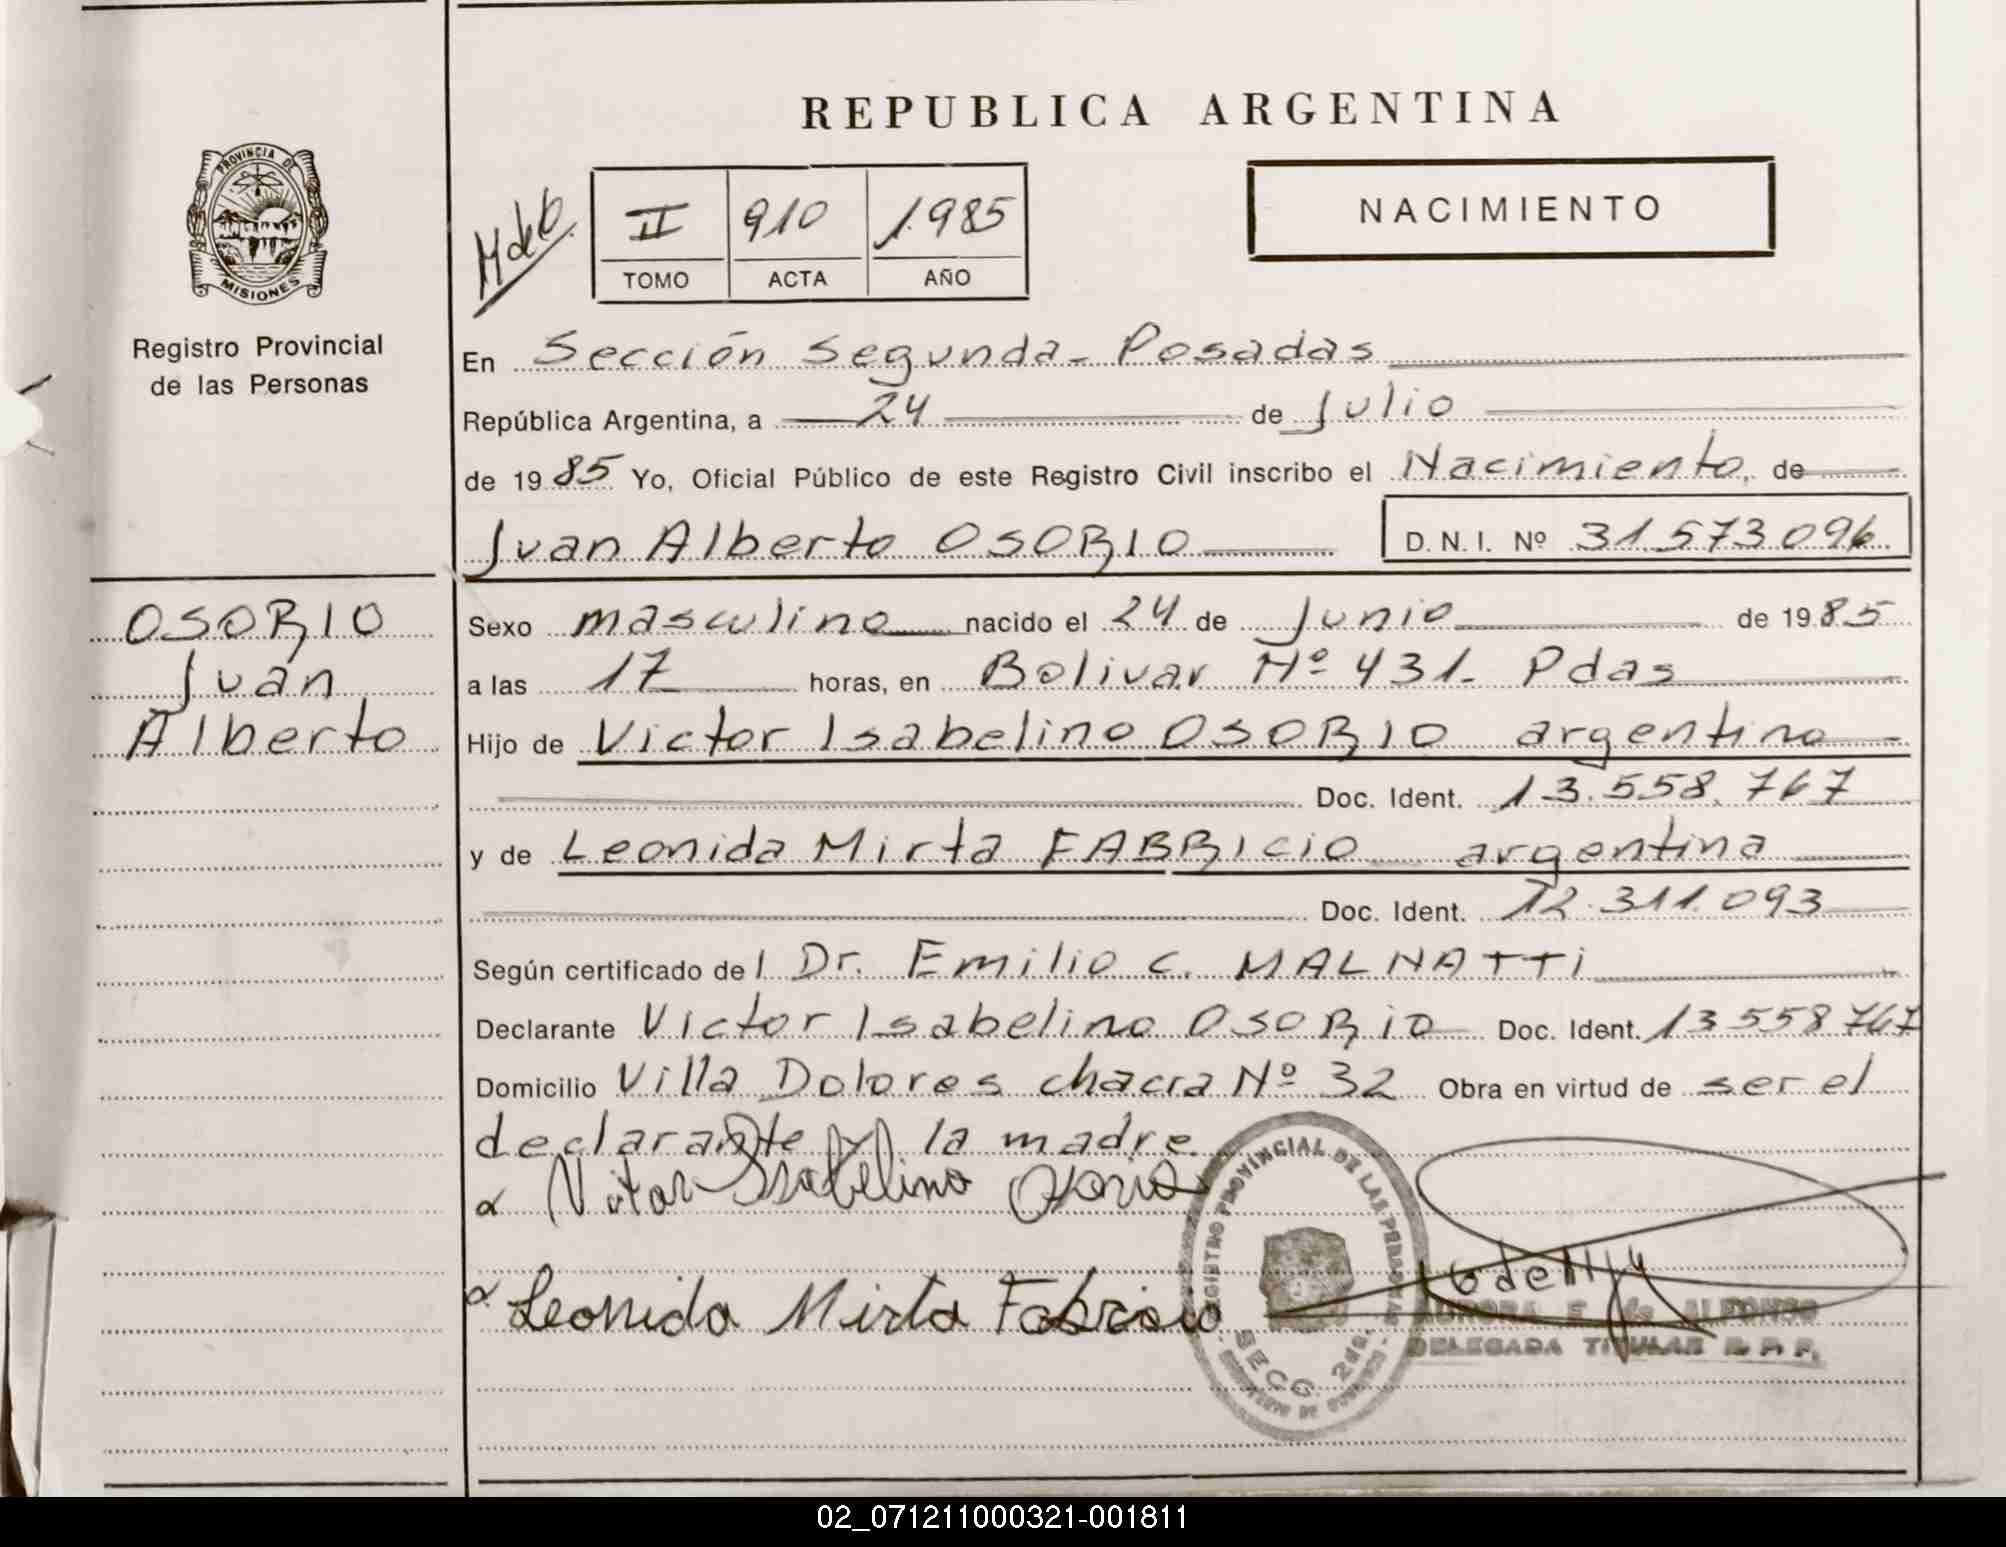 REPUBLICA ARGENTINA
PROVINCIA DE
MISIONES
Registro Provincial
de las Personas
II 910 1.985
TOMO ACTA AÑO
NACIMIENTO
En Sección Segunda- Posadas
República Argentina, a 24 de Julio
de 1985 Yo, Oficial Público de este Registro Civil inscribo el Nacimiento, de
Juan Alberto OSORIO D. N. I. Nº 31.573.096
OSORIO
Juan
Alberto
Sexo masculino nacido el 24 de Junio de 1985
a las 17 horas, en Bolivar Nº 431- Pdas
Hijo de Victor Isabelino OSORIO argentino
Doc. Ident. 13.558.767
y de Leonida Mirta FABRICIO argentina
Doc. Ident. 12.311.093
Según certificado del Dr. Emilio C. MALNATTI
Declarante Victor Isabelino OSORIO Doc. Ident. 13558767
Domicilio Villa Dolores chacra Nº 32 Obra en virtud de ser el
declarante y la madre
Victor Isabelino Osorio
Leonida Mirta Fabricio
REGISTRO PROVINCIAL DE LAS PERSONAS
SECC. 2da.
AURORA E. de ALFONSO
DELEGADA TITULAR R. P. P.
02_071211000321-001811